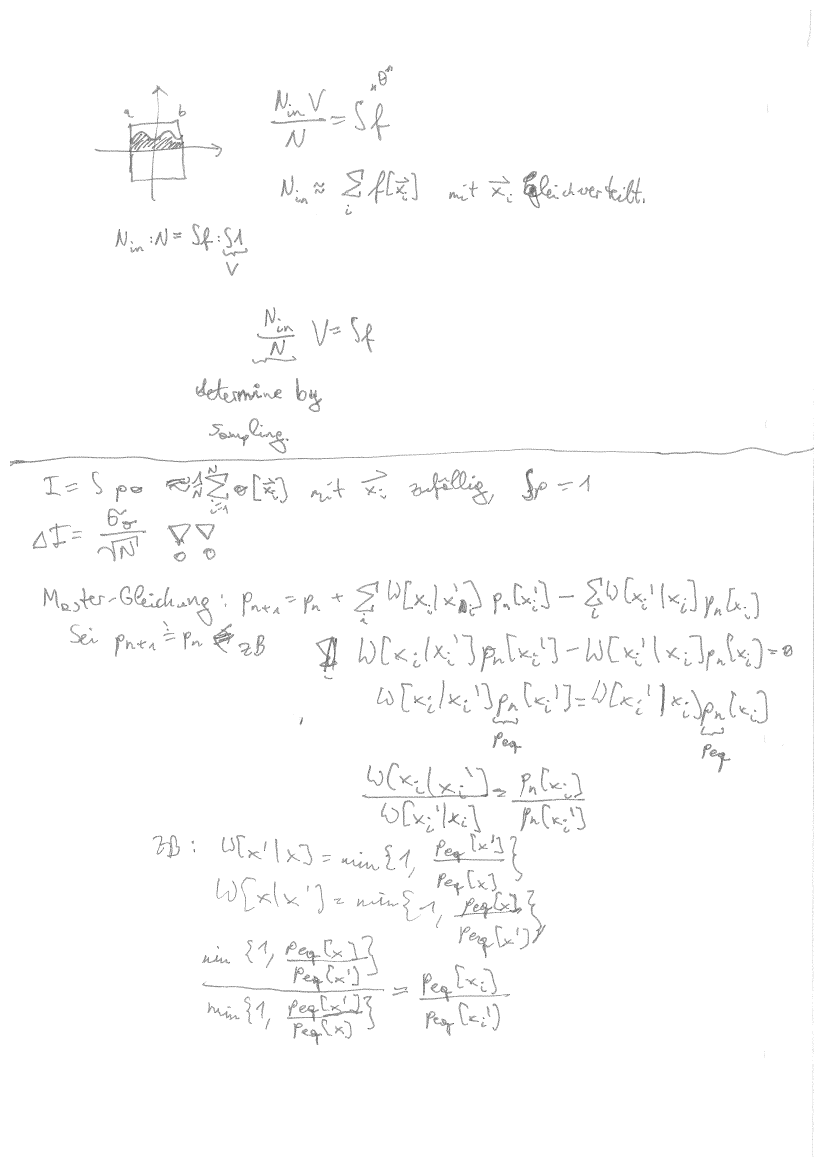 a b
N_in V / N = ∫f "θ"
N_in ≈ Σ_i f[x⃗_i] mit x⃗_i Gleichverteilt.
N_in : N = ∫f : ∫1
V
N_in / N V = ∫f
determine by
sampling.
I = ∫ p σ ≈ 1/N Σ_{i=1}^N σ[x⃗_i] mit x⃗_i zufällig, ∫p = 1
ΔI = σ_σ / √N
Master-Gleichung: p_{n+1} = p_n + Σ_i W[x_i|x_i'] p_n[x_i'] - Σ_i W[x_i'|x_i] p_n[x_i]
Sei p_{n+1} = p_n zB W[x_i|x_i'] p_n[x_i'] - W[x_i'|x_i] p_n[x_i] = 0
W[x_i|x_i'] p_n[x_i'] = W[x_i'|x_i] p_n[x_i]
peq peq
W[x_i|x_i'] / W[x_i'|x_i] = p_n[x_i] / p_n[x_i']
zB: W[x'|x] = min{1, peq[x'] / peq[x]}
W[x|x'] = min{1, peq[x] / peq[x']}
min{1, peq[x] / peq[x']} / min{1, peq[x'] / peq[x]} = peq[x_i] / peq[x_i']